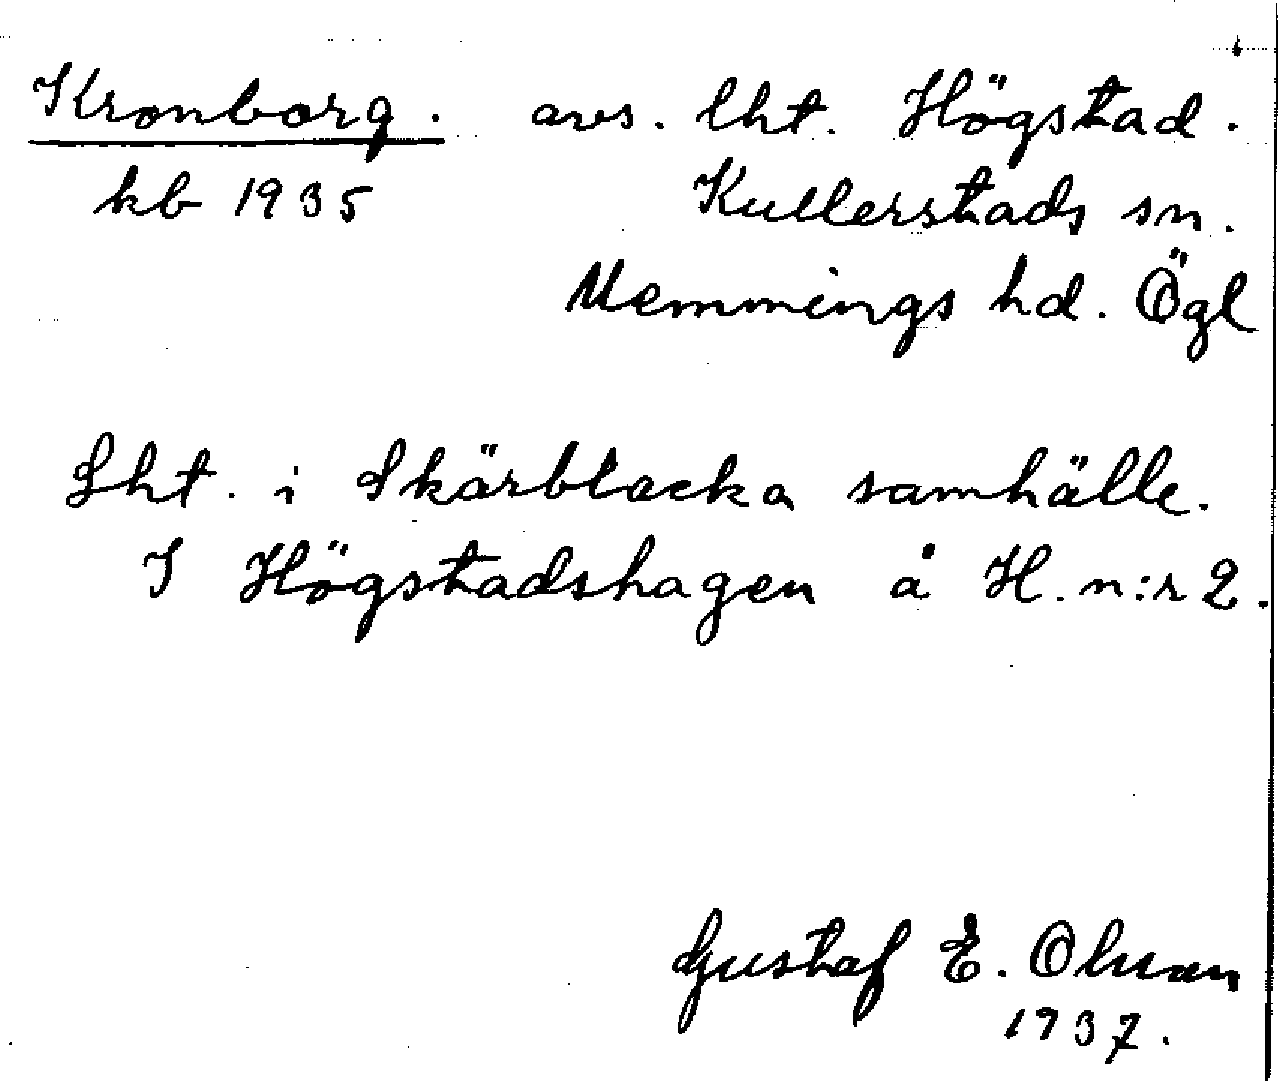 Kronborg. avs. lht. Högstad.
kb 1935 Kullerstads sn.
Memmings hd. Ögl
Lht. i Skärblacka samhälle.
I Högstadshagen å H. n:r 2.
Gustaf E. Olsson
1937.